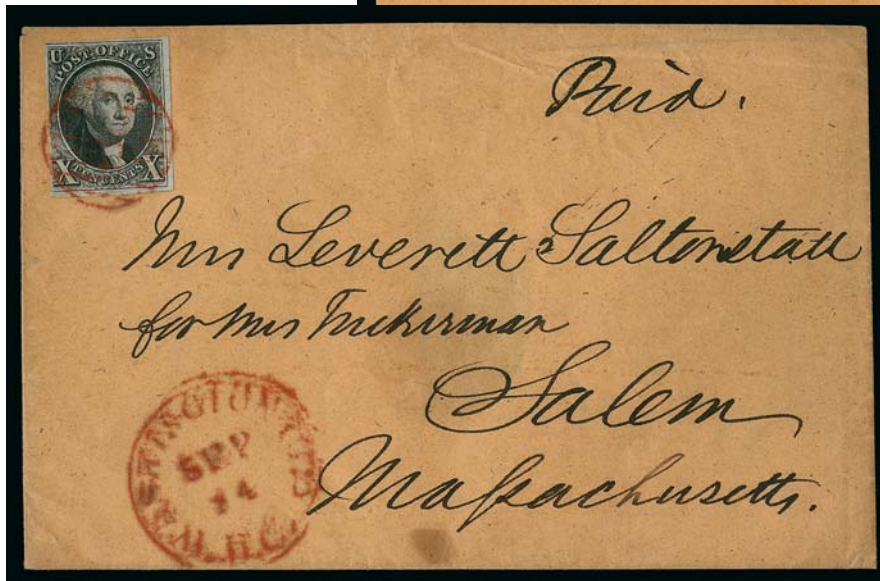 U S
POST OFFICE
X TEN CENTS X
Paid.
Mrs Leverett Saltonstall
for Mrs Tuckerman
Salem
Massachusetts.
SEP
14